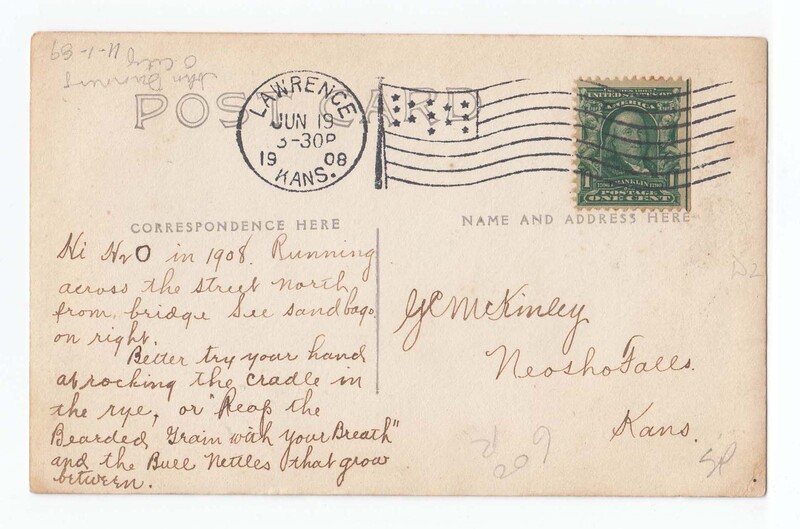 11-1-89
O City
John Dunning
POST CARD
LAWRENCE
JUN 19
3-30P
1908
KANS.
UNITED STATES OF
AMERICA
FRANKLIN
1
1
POSTAGE
ONE CENT
CORRESPONDENCE HERE
NAME AND ADDRESS HERE
Hi H2O in 1908. Running
across the street North
from bridge See sandbags
on right.
Better try your hand
at rocking the cradle in
the rye, or "Reap the
Bearded Grain with your Breath"
and the Bull Nettles that grow
between.
GC McKinley
Neosho Falls.
Kans.
D2
206
SP